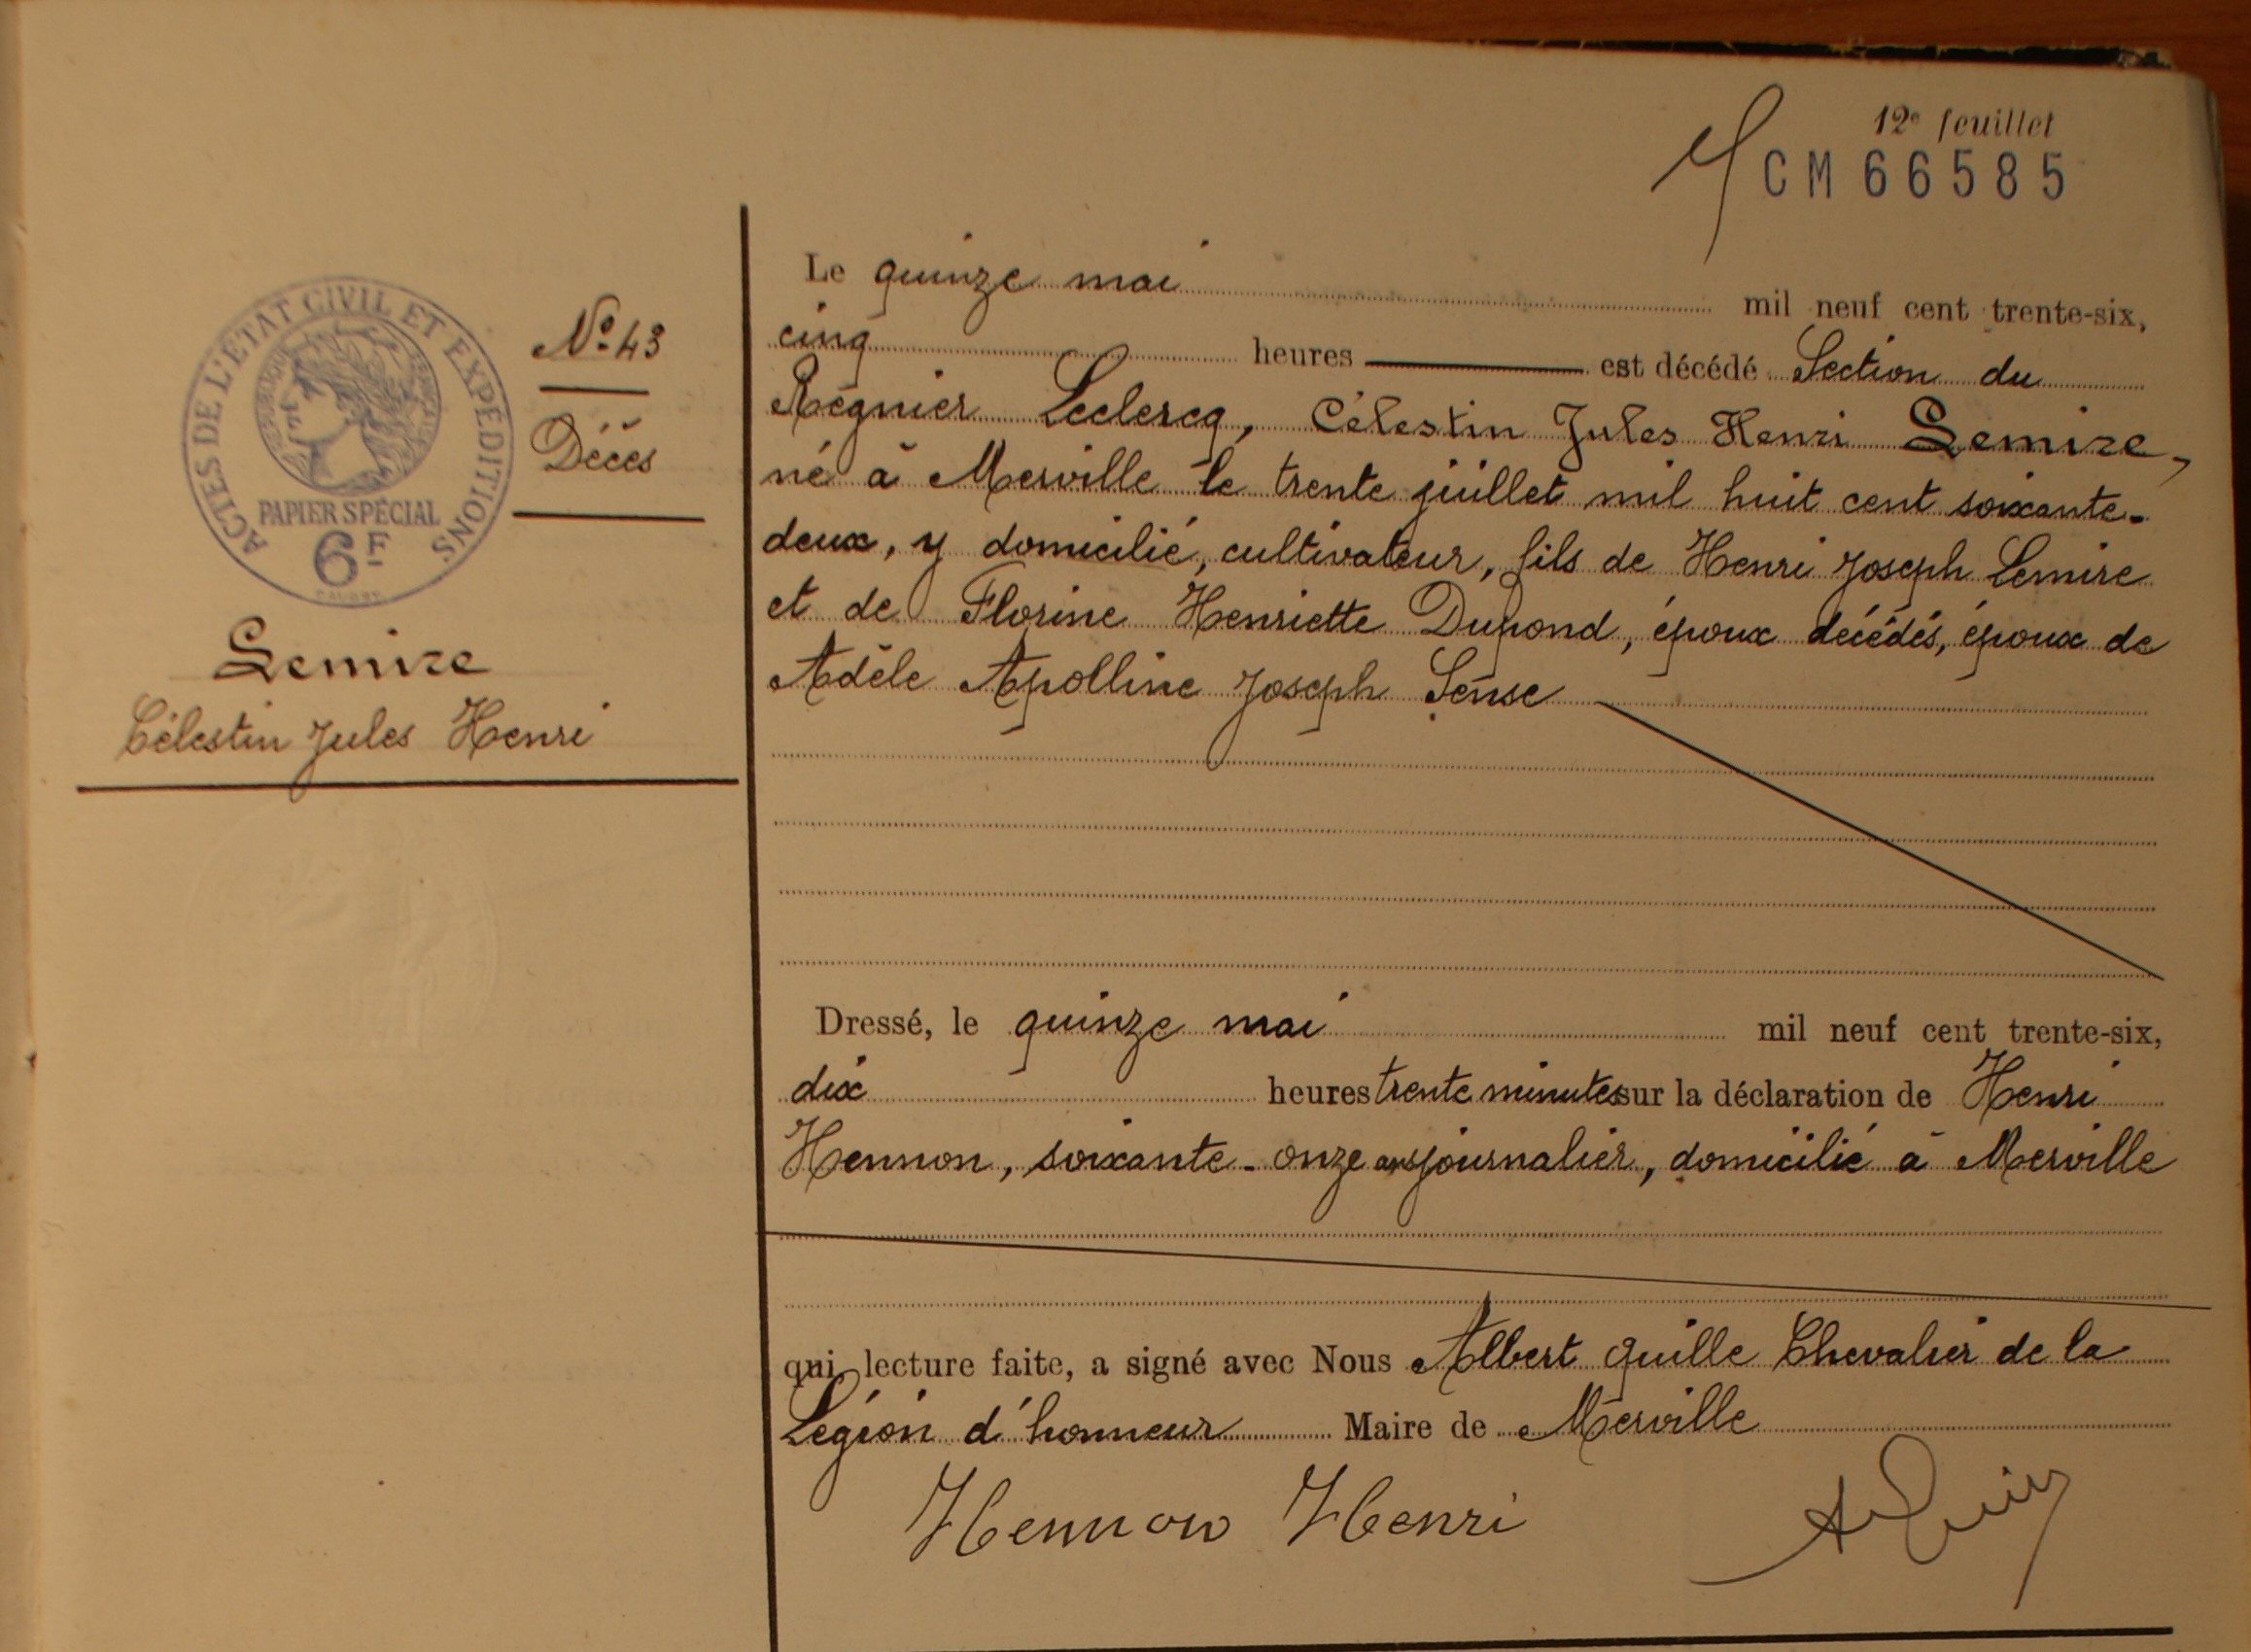 12e feuillet
CM 66585
ACTES DE L'ÉTAT CIVIL ET EXPÉDITIONS
RÉPUBLIQUE FRANÇAISE
PAPIER SPÉCIAL
6F
No 43
Décès
Lemire
Célestin Jules Henri
Le quinze mai mil neuf cent trente-six,
cinq heures est décédé Section du
Régnier Leclercq, Célestin Jules Henri Lemire,
né à Merville le trente juillet mil huit cent soixante-
deux, y domicilié, cultivateur, fils de Henri Joseph Lemire
et de Florine Henriette Dupond, époux décédés, époux de
Adèle Apolline Joseph Sense
Dressé, le quinze mai mil neuf cent trente-six,
dix heures trente minutes sur la déclaration de Henri
Hennon, soixante-onze ans journalier, domicilié à Merville
qui, lecture faite, a signé avec Nous Albert Quille Chevalier de la
Légion d'honneur Maire de Merville
Hennon Henri